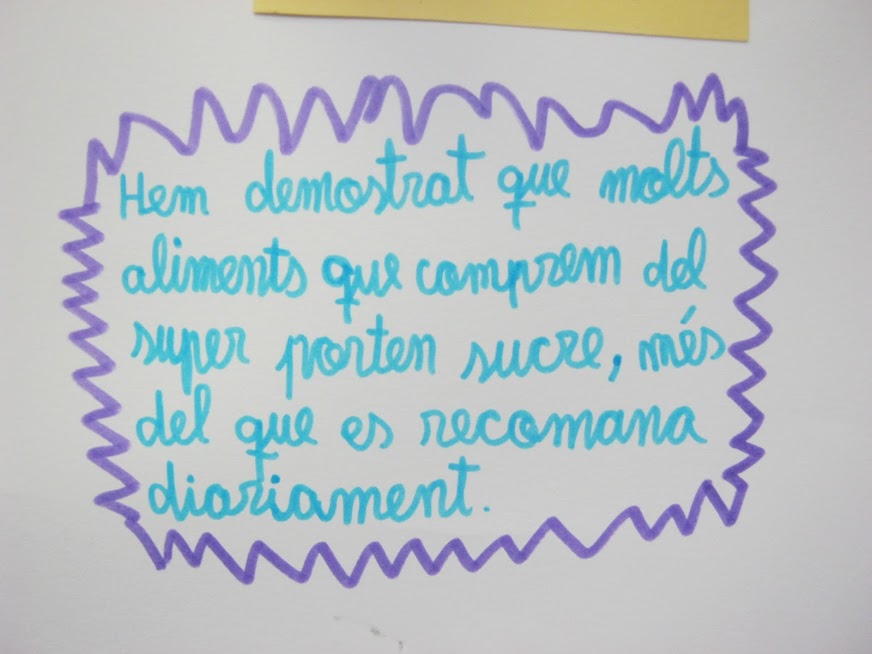 Hem demostrat que molts
aliments que comprem del
super porten sucre, més
del que es recomana
diariament.